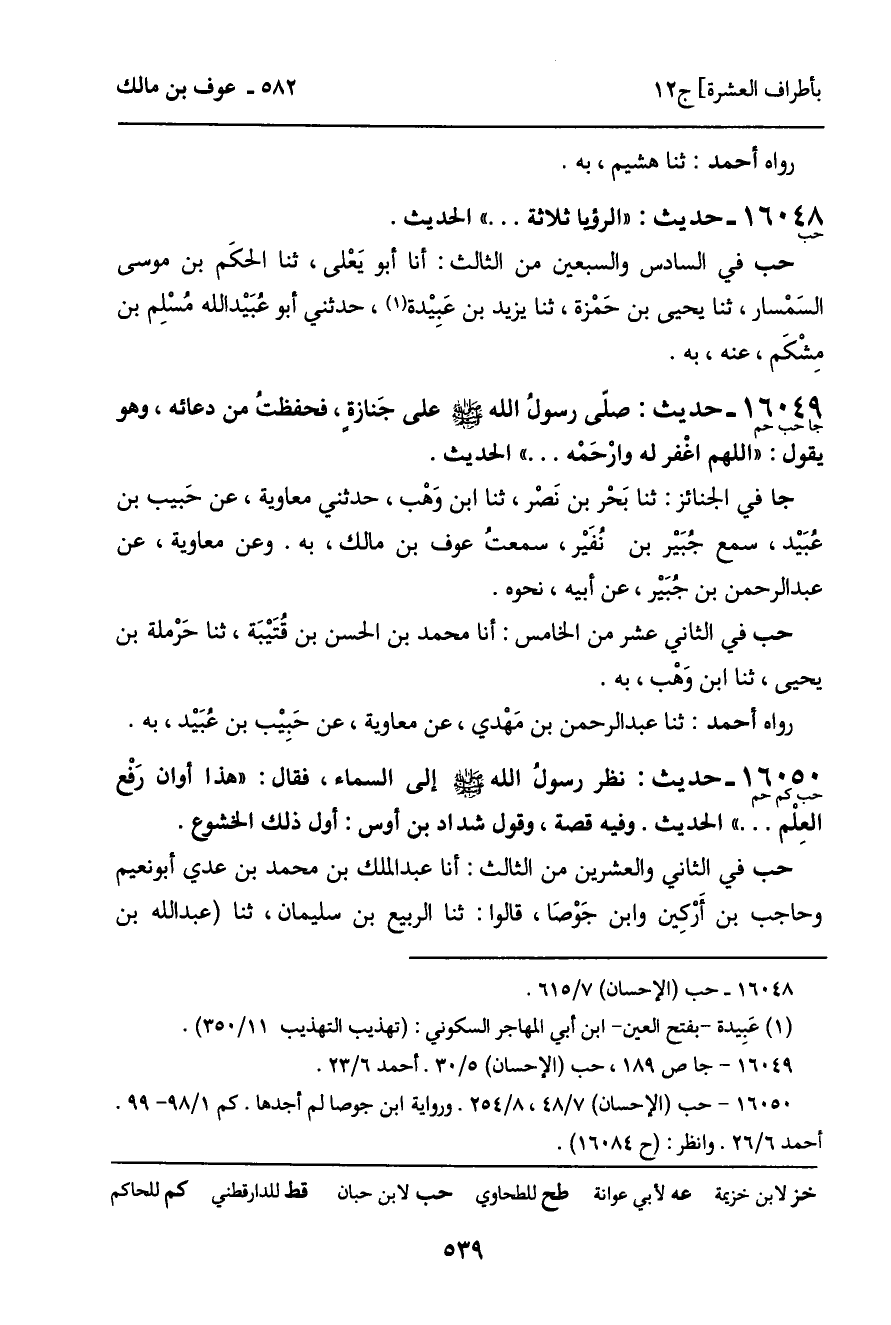 بأطراف العشرة] ج١٢ ٥٨٢ ـ عوف بن مالك
رواه أحمد : ثنا هشيم ، به .
١٦٠٤٨ ـ حديث : «الرؤيا ثلاثة ...» الحديث .
حب
حب في السادس والسبعين من الثالث : أنا أبو يَعْلى ، ثنا الحكَم بن موسى
السَمْسار ، ثنا يحيى بن حَمْزة ، ثنا يزيد بن عَبِيْدة(١) ، حدثني أبو عُبَيْدالله مُسْلِم بن
مِشْكَم ، عنه ، به .
١٦٠٤٩ ـ حديث : صلّى رسولُ الله ﷺ على جَنازةٍ ، فحفظتُ من دعائه ، وهو
جا حب حم
يقول : «اللهم اغْفر له وارْحَمْه ...» الحديث .
جا في الجنائز : ثنا بَحْر بن نَصْر ، ثنا ابن وَهْب ، حدثني معاوية ، عن حَبيب بن
عُبَيْد ، سمع جُبَيْر بن نُفَيْر ، سمعتُ عوف بن مالك ، به . وعن معاوية ، عن
عبدالرحمن بن جُبَيْر ، عن أبيه ، نحوه .
حب في الثاني عشر من الخامس : أنا محمد بن الحسن بن قُتَيْبَة ، ثنا حَرْملة بن
يحيى ، ثنا ابن وَهْب ، به .
رواه أحمد : ثنا عبدالرحمن بن مَهْدي ، عن معاوية ، عن حَبِيْب بن عُبَيْد ، به .
١٦٠٥٠ ـ حديث : نظر رسولُ الله ﷺ إلى السماء ، فقال : «هذا أوان رَفْع
حب كم حم
العِلْم ...» الحديث . وفيه قصة ، وقول شداد بن أوس : أول ذلك الخشوع .
حب في الثاني والعشرين من الثالث : أنا عبدالملك بن محمد بن عدي أبونعيم
وحاجب بن أَرْكين وابن جَوْصَا ، قالوا : ثنا الربيع بن سليمان ، ثنا (عبدالله بن
١٦٠٤٨ ـ حب (الإحسان) ٦١٥/٧ .
(١) عَبِيدة –بفتح العين– ابن أبي المهاجر السكوني : (تهذيب التهذيب ٣٥٠/١١) .
١٦٠٤٩ – جا ص ١٨٩ ، حب (الإحسان) ٣٠/٥ . أحمد ٢٣/٦ .
١٦٠٥٠ – حب (الإحسان) ٤٨/٧ ، ٢٥٤/٨ . ورواية ابن جوصا لم أجدها . كم ٩٨/١– ٩٩ .
أحمد ٢٦/٦ . وانظر : (ح ١٦٠٨٤) .
خز لابن خزيمة عه لأبي عوانة طح للطحاوي حب لابن حبان قط للدارقطني كم للحاكم
٥٣٩